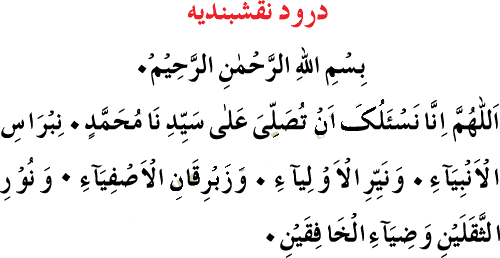 درود نقشبندیه
بِسْمِ اللهِ الرَّحْمٰنِ الرَّحِيْمْ۰
اَللّٰهُمَّ اِنَّا نَسْئَلُکَ اَنْ تُصَلِّیَ عَلٰی سَیِّدِ نَا مُحَمَّدٍ۰ نِبْرَاسِ
الْاَنْبِیَآءِ۰ وَنَیِّرِ الْاَوْلِیَآءِ۰ وَزَبْرِقَانِ الْاَصْفِیَآءِ۰ وَنُوْرِ
الثَّقَلَیْنِ وَضِیَآءِ الْخَافِقَیْنِ۰